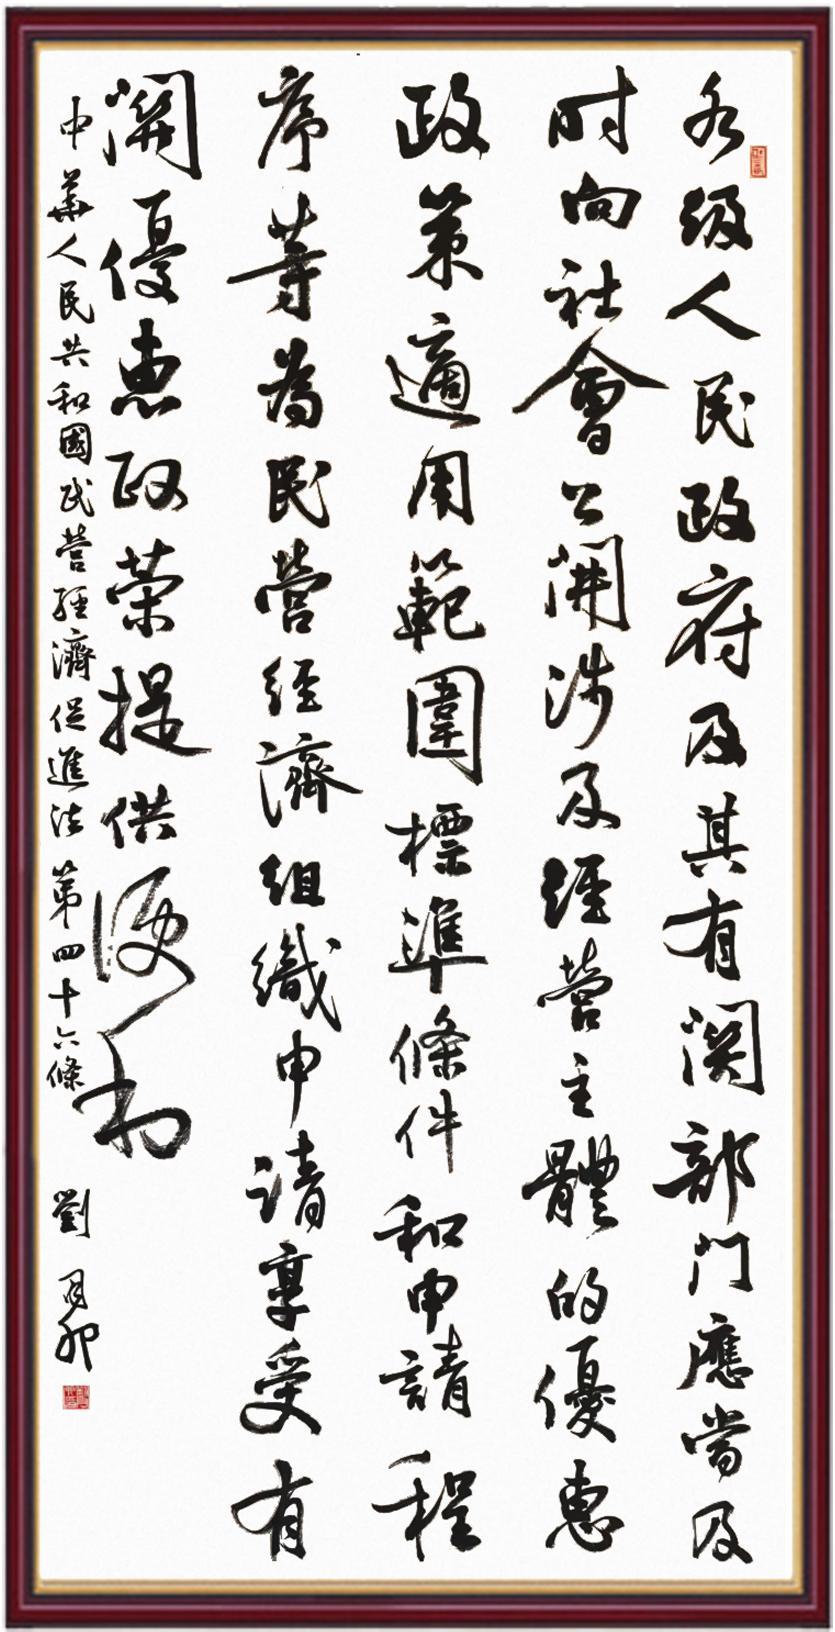 各级人民政府及其有関部门應當及
时向社會公開涉及經營主體的優惠
政策適用範圍標準條件和申請程
序等為民營经濟組織申请享受有
関優惠政策提供便利
中華人民共和國民营经濟促進法第四十六條 劉月卯